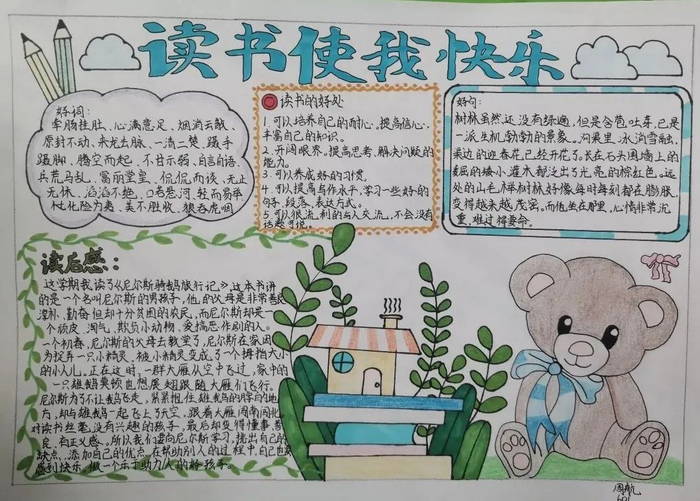 读书使我快乐
好词:
牵肠挂肚、心满意足、烟消云散、
原封不动、来龙去脉、一清二楚、蹑手
蹑脚、腾空而起、不甘示弱、自言自语、
兵荒马乱、富丽堂皇、侃侃而谈、无止
无休、滔滔不绝、口若悬河、轻而易举
化险为夷、美不胜收、狼吞虎咽
读书的好处
1.可以培养自己的耐心,提高信心,
丰富自己的知识。
2.开阔眼界,提高思考、解决问题的
能力。
3.可以养成好的习惯。
4.可以提高写作水平,学习一些好的
句子、段落、表达方式。
5.可以很流利的与人交流,不会没有
话题可说。
好句:
树林虽然还没有绿遍,但是含苞吐芽,已是
一派生机勃勃的景象。沟渠里,冰消雪融,
渠边的迎春花已经开花了。长在石头围墙上的
的矮小灌木都泛出了光亮的棕红色。远
处的山毛榉树林好像每时每刻都在膨胀,
变得越来越茂密。而他坐在那里,心情非常沉
重,难过得要命。
读后感:
这学期我读了《尼尔斯骑鹅旅行记》,这本书讲
的是一个名叫尼尔斯的男孩子,他的父母是非常善良
淳朴、勤奋但却十分贫困的农民,而尼尔斯却是一
个顽皮、淘气、欺负小动物、爱搞恶作剧的人。
一个初春,尼尔斯的父母去教堂了,尼尔斯在家因
为捉弄一只小精灵,被小精灵变成了一个拇指大小
的小人儿。正在这时,一群大雁从空中飞过,家中的
一只雄鹅莫顿也想展翅跟随大雁们飞行。
尼尔斯为了不让鹅飞走,紧紧抱住雄鹅的脖子
方,却与雄鹅一起飞上了天空。跟着大雁周南闯北
对读书丝毫没有兴趣的孩子,最后却变得懂事
良、有正义感。所以我们要向尼尔斯学习,找出自己的
缺点,添加自己的优点,在帮助别人的过程中,自己也
感到快乐,做一个乐于助人的好孩子。
周航
601